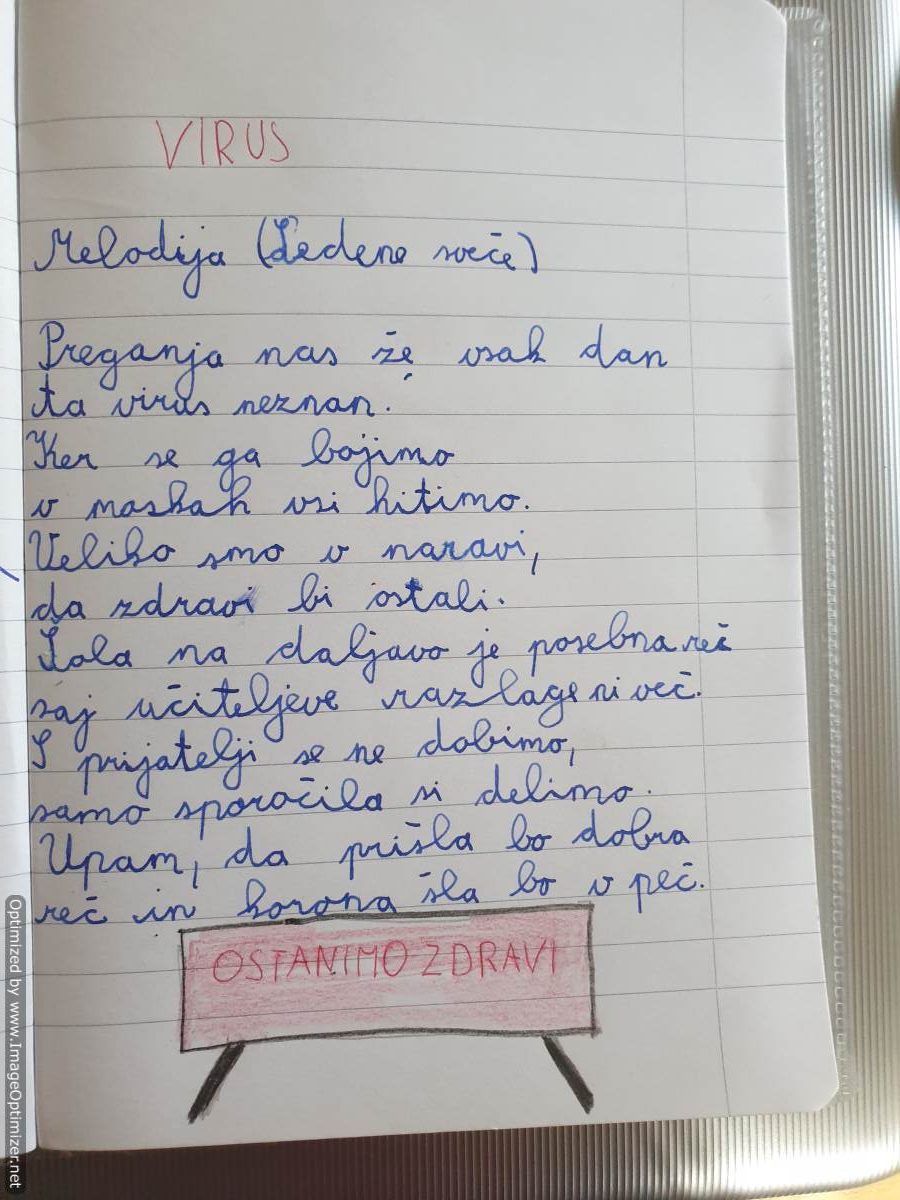 VIRUS
Melodija (Ledene sveče)
Preganja nas že vsak dan
ta virus neznan.
Ker se ga bojimo
v maskah vsi hitimo.
Veliko smo v naravi,
da zdravi bi ostali.
Šola na daljavo je posebna reč
saj učiteljeve razlage ni več.
S prijatelji se ne dobimo,
samo sporočila si delimo.
Upam, da prišla bo dobra
reč in korona šla bo v peč.
OSTANIMO ZDRAVI
Optimized by www.ImageOptimizer.net